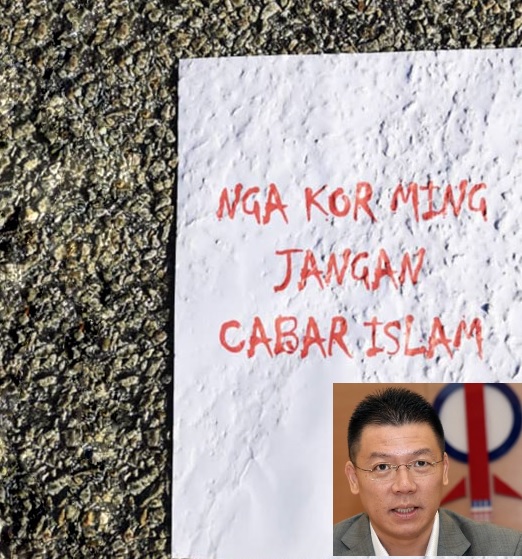 NGA KOR MING
JANGAN
CABAR ISLAM